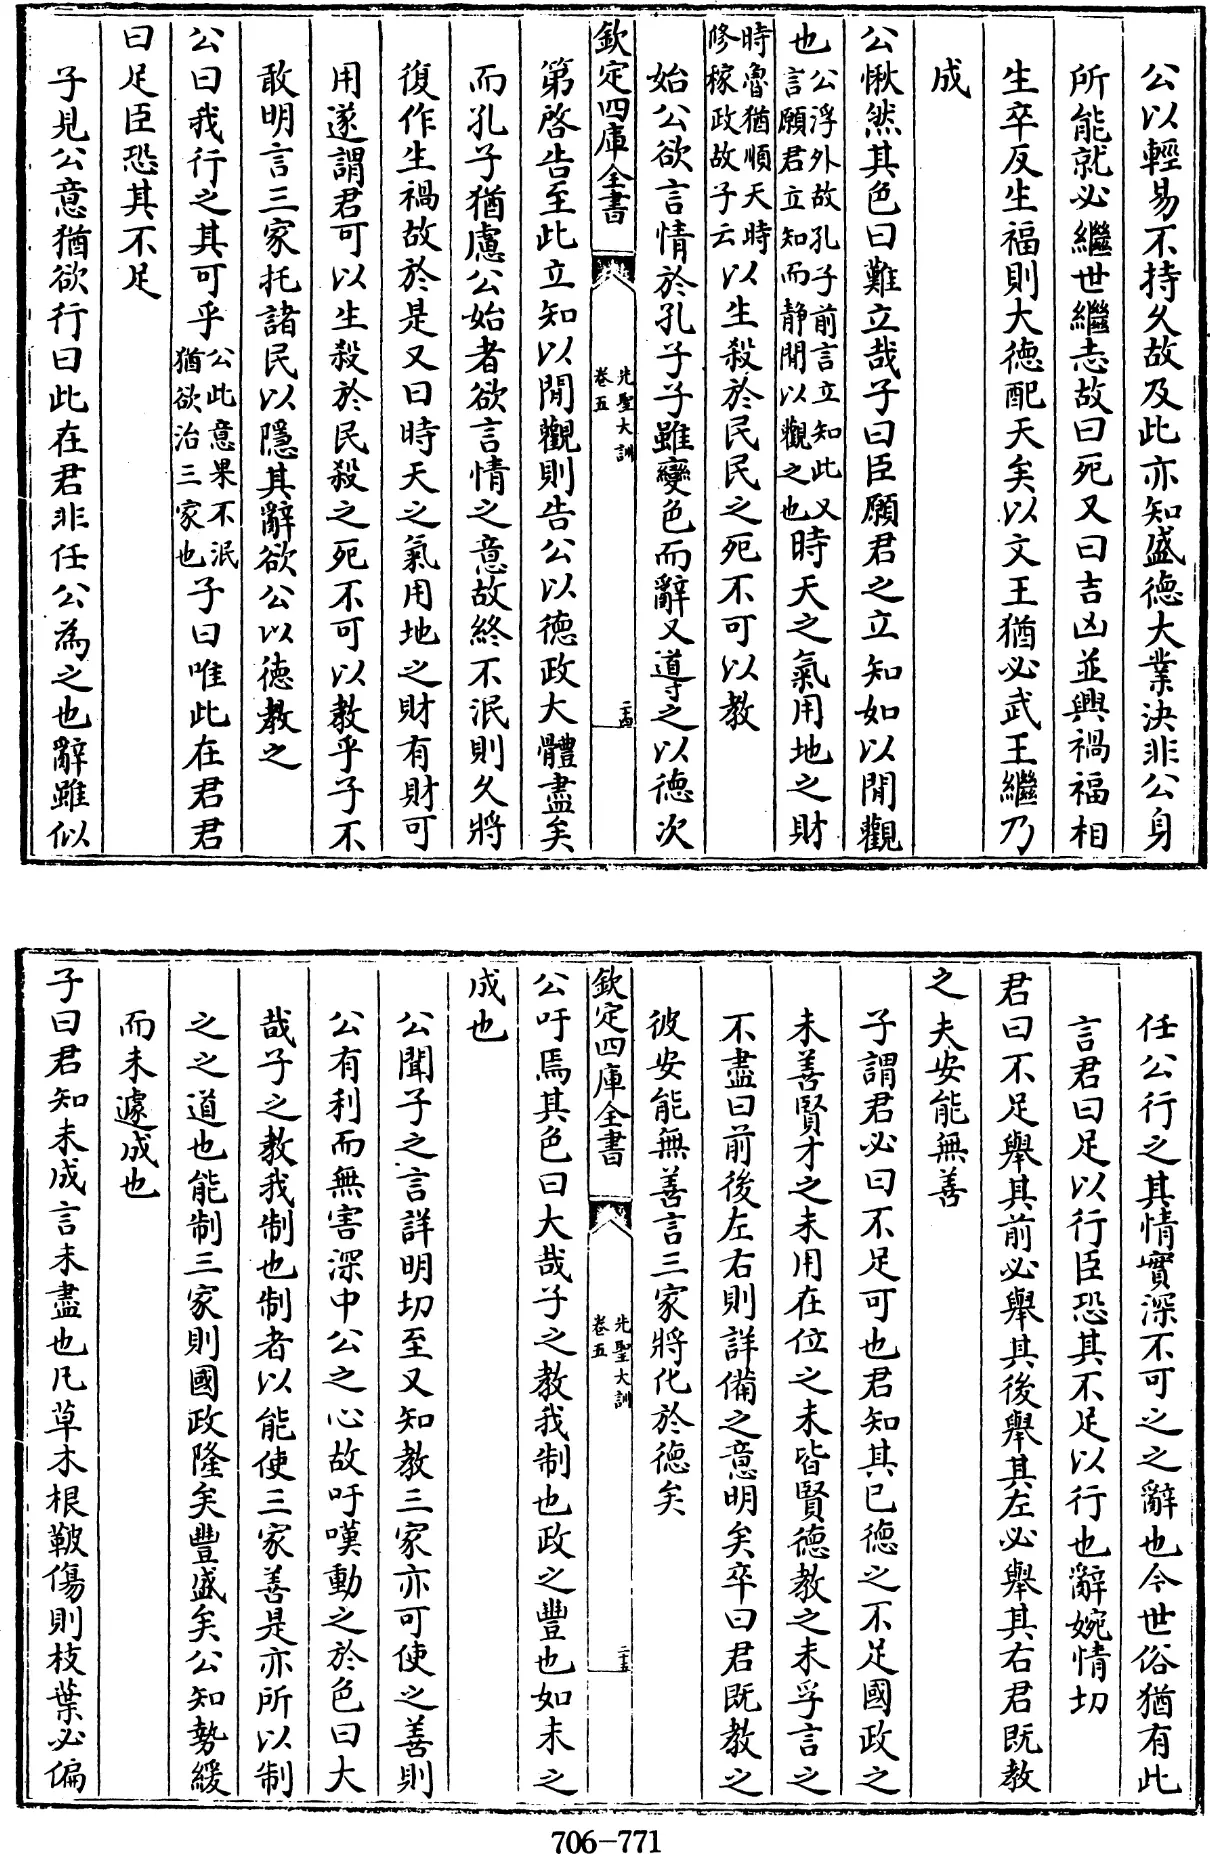 公以輕易不持久故及此亦知盛德大業決非公身
所能就必繼世繼志故曰死又曰吉凶並興禍福相
生卒反生福則大德配天矣以文王猶必武王繼乃
成
公愀然其色曰難立哉子曰臣願君之立知如以閒觀
也公浮外故孔子前言立知此又言願君立知而静閒以觀之也時天之氣用地之財
時魯猶順天時修稼政故子云時以生殺於民民之死不可以教
始公欲言情於孔子子雖變色而辭又導之以德次
欽定四庫全書
先聖大訓
卷五
二十四
第啓告至此立知以閒觀則告公以德政大體盡矣
而孔子猶慮公始者欲言情之意故終不泯則久將
復作生禍故於是又曰時天之氣用地之財有財可
用遂謂君可以生殺於民殺之死不可以教乎子不
敢明言三家托諸民以隱其辭欲公以德教之
公曰我行之其可乎公此意果不泯猶欲治三家也子曰唯此在君君
曰足臣恐其不足
子見公意猶欲行曰此在君非任公為之也辭雖似
任公行之其情實深不可之之辭也今世俗猶有此
言君曰足以行臣恐其不足以行也辭婉情切
君曰不足舉其前必舉其後舉其左必舉其右君既教
之夫安能無善
子謂君必曰不足可也君知其已德之不足國政之
未善賢才之未用在位之未皆賢德教之未孚言之
不盡曰前後左右則詳備之意明矣卒曰君既教之
彼安能無善言三家將化於德矣
欽定四庫全書
先聖大訓
卷五
二十五
公吁焉其色曰大哉子之教我制也政之豐也如未之
成也
公聞子之言詳明切至又知教三家亦可使之善則
公有利而無害深中公之心故吁嘆動之於色曰大
哉子之教我制也制者以能使三家善是亦所以制
之之道也能制三家則國政隆矣豐盛矣公知勢緩
而未遽成也
子曰君知未成言未盡也凡草木根鞁傷則枝葉必偏
706-771